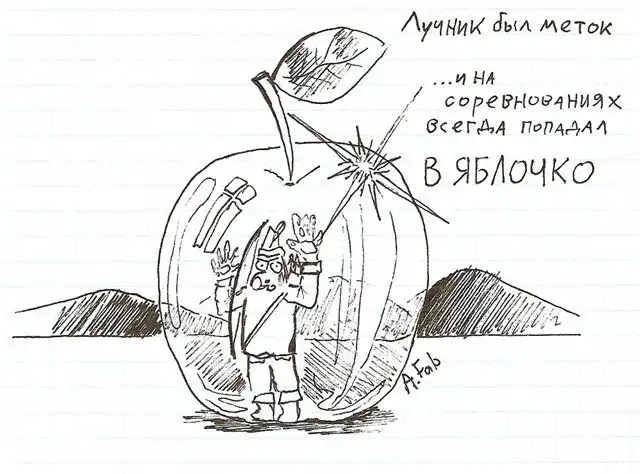 Лучник был меток
...и на
соревнованиях
всегда попадал
в яблочко
A.Fab